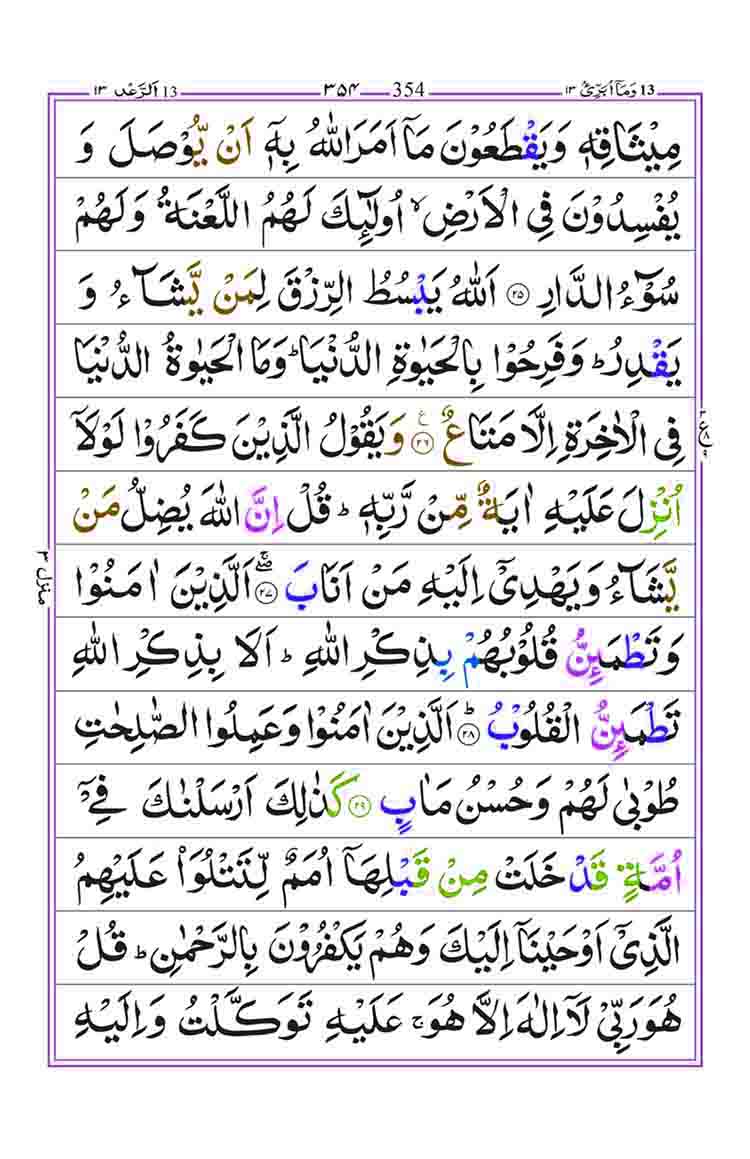 13 اَلرَّعْد ١٣ ٣٥۴ 354 13 وَمَاۤ اُبَرِّئُ ١٣
مِيْثَاقِهٖ وَيَقْطَعُوْنَ مَاۤ اَمَرَ اللّٰهُ بِهٖۤ اَنْ يُّوْصَلَ وَ
يُفْسِدُوْنَ فِى الْاَرْضِۙ اُولٰٓئِكَ لَهُمُ اللَّعْنَةُ وَلَهُمْ
سُوْۤءُ الدَّارِ ۝٢٥ اَللّٰهُ يَبْسُطُ الرِّزْقَ لِمَنْ يَّشَآءُ وَ
يَقْدِرُؕ وَفَرِحُوْا بِالْحَيٰوةِ الدُّنْيَاؕ وَمَا الْحَيٰوةُ الدُّنْيَا
فِى الْاٰخِرَةِ اِلَّا مَتَاعٌ ۝٢٦ ع وَيَقُوْلُ الَّذِيْنَ كَفَرُوْا لَوْلَاۤ
اُنْزِلَ عَلَيْهِ اٰيَةٌ مِّنْ رَّبِّهٖؕ قُلْ اِنَّ اللّٰهَ يُضِلُّ مَنْ
يَّشَآءُ وَيَهْدِىْۤ اِلَيْهِ مَنْ اَنَابَ ۝٢٧ۖۚ اَلَّذِيْنَ اٰمَنُوْا
وَتَطْمَئِنُّ قُلُوْبُهُمْ بِذِكْرِ اللّٰهِؕ اَلَا بِذِكْرِ اللّٰهِ
تَطْمَئِنُّ الْقُلُوْبُ ۝٢٨ؕ اَلَّذِيْنَ اٰمَنُوْا وَعَمِلُوا الصّٰلِحٰتِ
طُوْبٰى لَهُمْ وَحُسْنُ مَاٰبٍ ۝٢٩ كَذٰلِكَ اَرْسَلْنٰكَ فِىْۤ
اُمَّةٍ قَدْ خَلَتْ مِنْ قَبْلِهَاۤ اُمَمٌ لِّتَتْلُوَا۟ عَلَيْهِمُ
الَّذِىْۤ اَوْحَيْنَاۤ اِلَيْكَ وَهُمْ يَكْفُرُوْنَ بِالرَّحْمٰنِؕ قُلْ
هُوَ رَبِّىْ لَاۤ اِلٰهَ اِلَّا هُوَۚ عَلَيْهِ تَوَكَّلْتُ وَاِلَيْهِ
منزل ٣